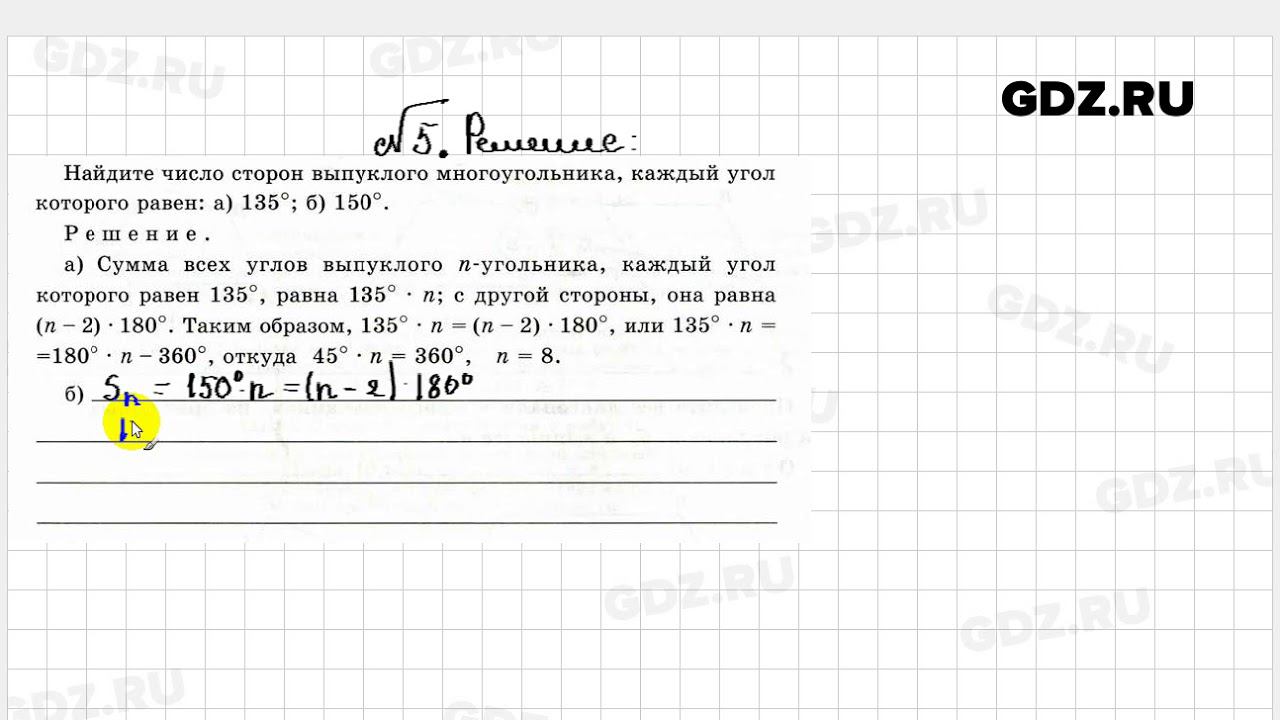 GDZ.RU
GDZ.RU
GDZ.RU
№5. Решение:
Найдите число сторон выпуклого многоугольника, каждый угол
которого равен: а) 135°; б) 150°.
GDZ.RU
Решение.
а) Сумма всех углов выпуклого n-угольника, каждый угол
которого равен 135°, равна 135° · n; с другой стороны, она равна
(n – 2) · 180°. Таким образом, 135° · n = (n – 2) · 180°, или 135° · n =
=180° · n – 360°, откуда 45° · n = 360°, n = 8.
GDZ.RU
б) Sn = 150°·n = (n - 2) · 180°
GDZ.RU
GDZ.RU
GDZ.RU
GDZ.RU
GDZ.RU